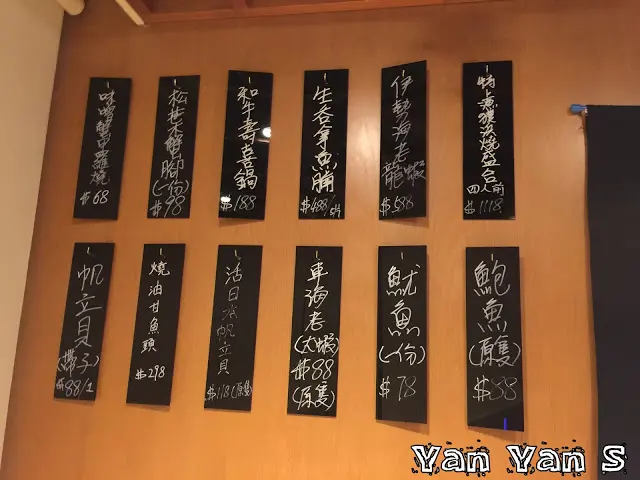 味噌蟹甲羅燒
$68
松葉蟹腳
(一份)
$98
和牛壽喜鍋
$188
生吞拿魚腩
$488/
伊勢海老
龍蝦
$588
特上漁獲炭燒盛合
四人前
$1118
帆立貝
(帶子)
$88/1
燒油甘魚頭
$298
活日本帆立貝
$118(原隻)
車海老
(大蝦)
$88
(原隻)
魷魚
(一份)
$78
鮑魚
(原隻)
$88
Yan Yan S